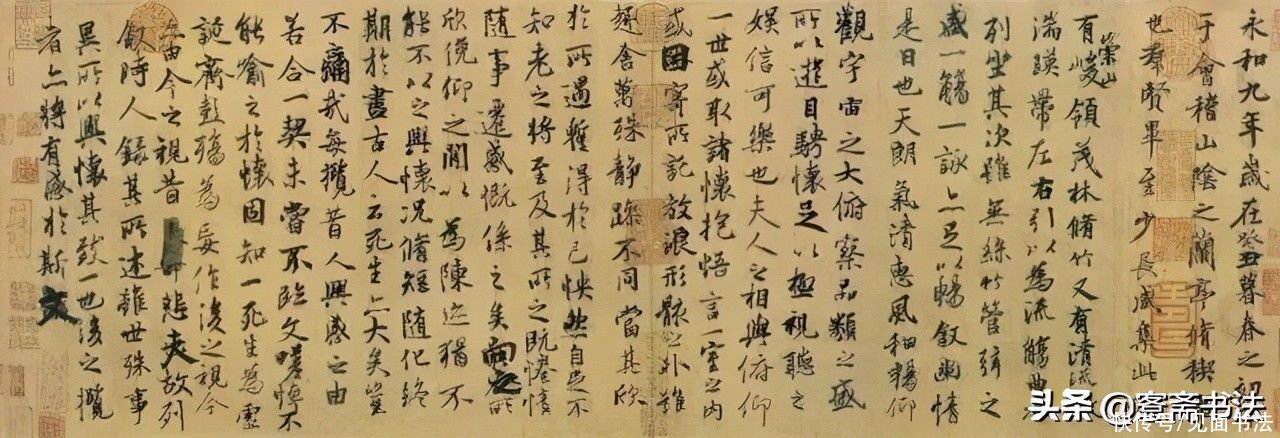 永和九年歲在癸丑暮春之初
于會稽山陰之蘭亭脩稧
也羣賢畢至少長咸集此
有崇山峻領茂林脩竹又有清流
湍暎帶左右引以為流觴曲
列坐其次雖無絲竹管弦之
盛一觴一詠亦足以暢敘幽情
是日也天朗氣清惠風和暢仰
觀宇宙之大俯察品類之盛
所以遊目騁懷足以極視聽之
娛信可樂也夫人之相與俯仰
一世或取諸懷抱悟言一室之內
或因寄所託放浪形骸之外雖
趣舍萬殊靜躁不同當其欣
於所遇蹔得於己怏然自足不
知老之將至及其所之既惓情
隨事遷感慨係之矣向之所
欣俛仰之閒以為陳迹猶不
能不以之興懷況脩短隨化終
期於盡古人云死生亦大矣豈
不痛哉每攬昔人興感之由
若合一契未嘗不臨文嗟悼不
能喻之於懷固知一死生為虛
誕齊彭殤為妄作後之視今
亦由今之視昔悲夫故列
敘時人錄其所述雖世殊事
異所以興懷其致一也後之攬
者亦將有感於斯文
头条@謇斋书法
快传号/见面书法